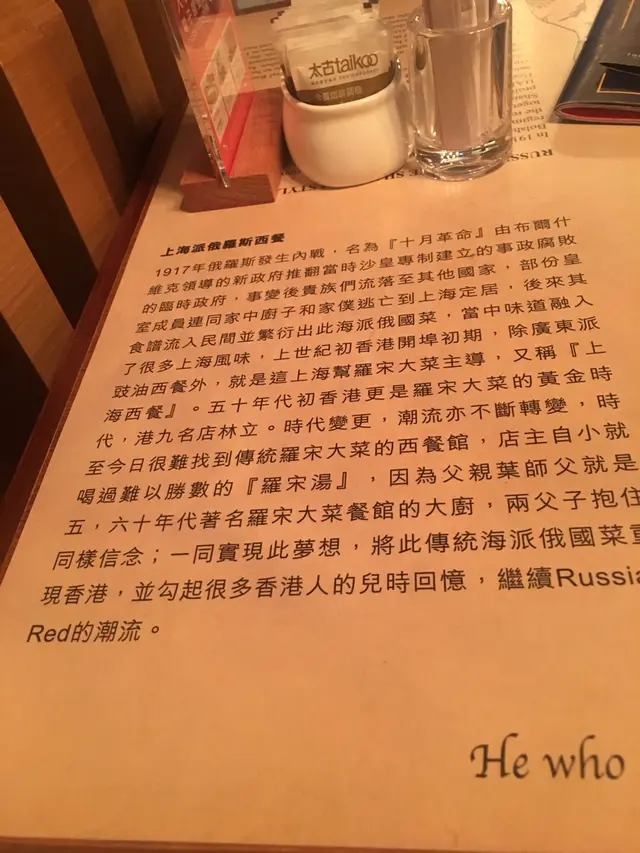 太古taikoo
RUSS
In 190
Bolsh
regim
togeth
上海派俄羅斯西餐
1917年俄羅斯發生內戰，名為『十月革命』由布爾什
維克領導的新政府推翻當時沙皇專制建立的事政腐敗
的臨時政府，事變後貴族們流落至其他國家，部份皇
室成員連同家中廚子和家僕逃亡到上海定居，後來其
食譜流入民間並繁衍出此海派俄國菜，當中味道融入
了很多上海風味，上世紀初香港開埠初期，除廣東派
豉油西餐外，就是這上海幫羅宋大菜主導，又稱『上
海西餐』。五十年代初香港更是羅宋大菜的黃金時
代，港九名店林立。時代變更，潮流亦不斷轉變，時
至今日很難找到傳統羅宋大菜的西餐館，店主自小就
喝過難以勝數的『羅宋湯』，因為父親葉師父就是
五，六十年代著名羅宋大菜餐館的大廚，兩父子抱住
同樣信念；一同實現此夢想，將此傳統海派俄國菜重
現香港，並勾起很多香港人的兒時回憶，繼續Russia
Red的潮流。
He who